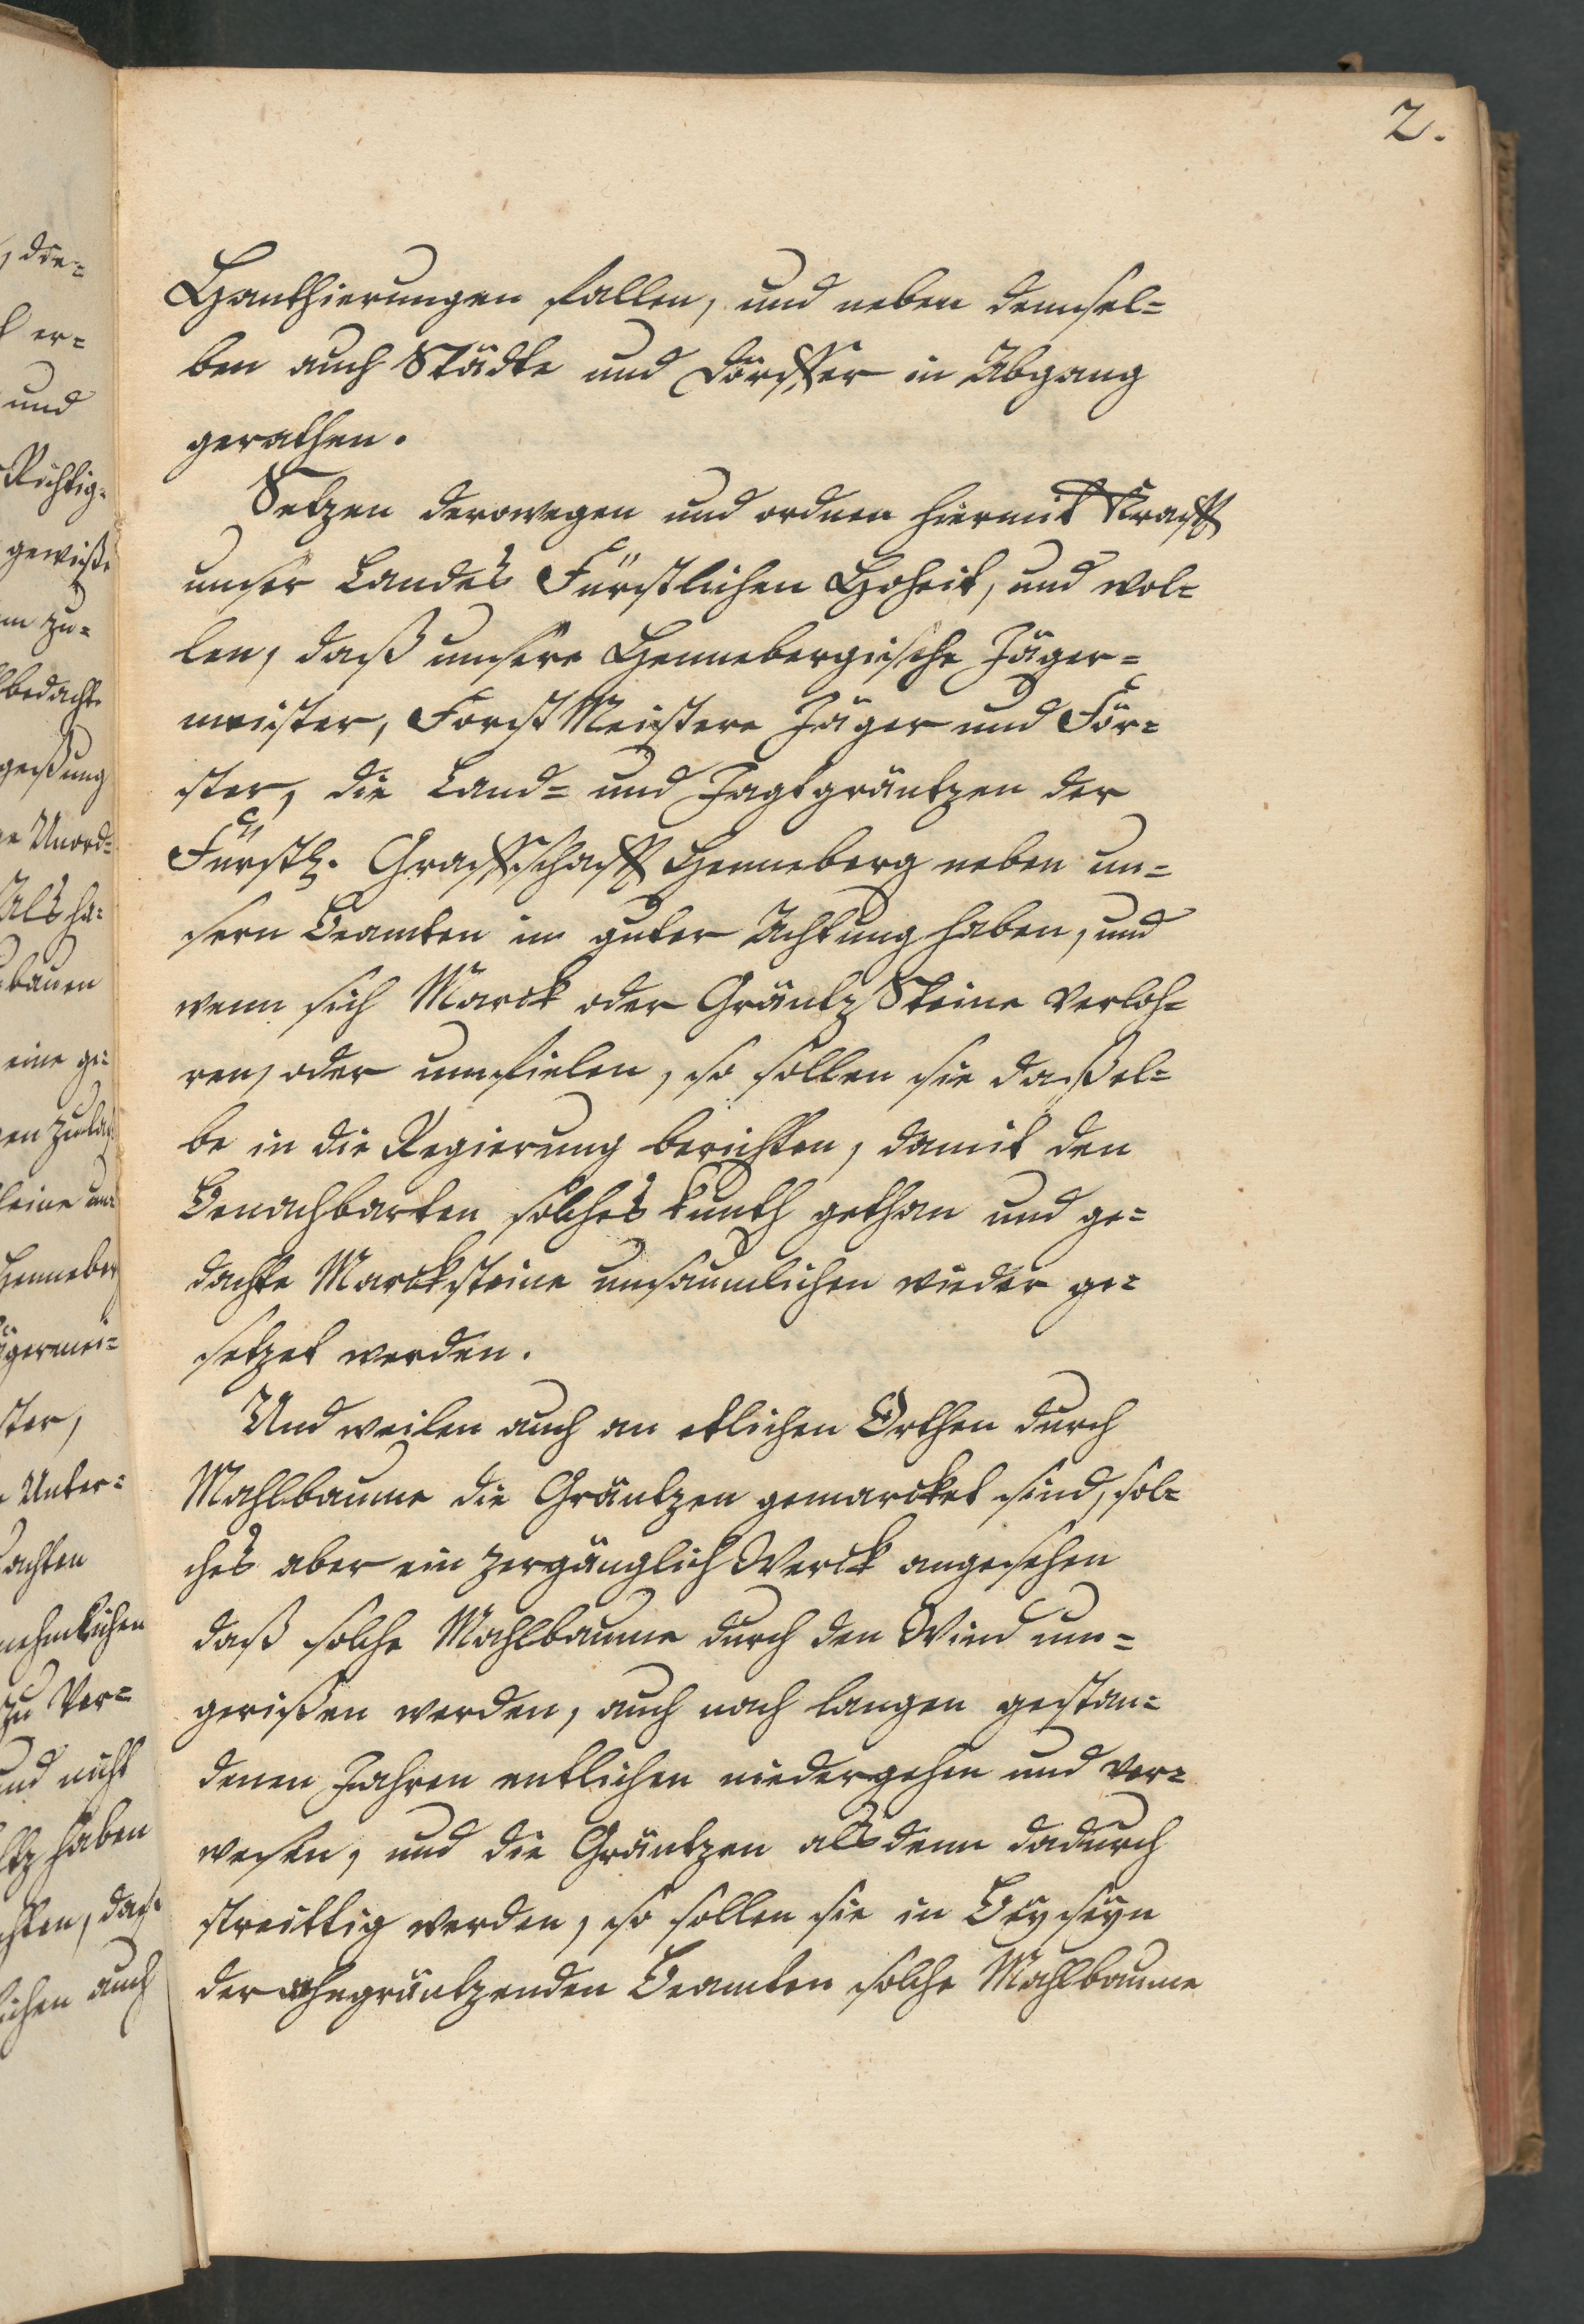 2.
Hanthierungen fallen, und neben demsel=
ben auch Städte und Dörffer in Abgang
gerathen.
Setzen derowegen und ordnen hiermit Krafft
unser Landes Fürstlichen Hoheit, und wol=
len, daß unsere Hennebergische Jäger=
meister, Forst Meistere Jäger und För=
ster, die Land= und Jagtgräntzen der
Fürstl. Graffschafft Henneberg neben un=
sern Beamten in guter Achtung haben, und
wenn sich Marck oder Gräntz Steine verloh=
ren, oder umfielen, so sollen sie daßel=
be in die Regierung berichten, damit den
Benachbarten solches kunth gethan und ge=
dachte Marcksteine unsäumlichen wieder ge=
setzet werden.
Und weilen auch an etlichen Orthen durch
Mahlbaume die Gräntzen gemarcket sind, sol=
ches aber ein zergänglich Werck angesehen
daß solche Mahlbaume durch den Wind um=
gerißen werden, auch nach langen gestan=
denen Jahren entlichen niedergehen und ver=
wesen, und die Gräntzen alsdenn dadurch
streittig werden, so sollen sie in Beyseyn
der angräntzenden Beamten solche Mahlbaume
die=
er=
und
Richtig=
gewiße
zu=
bedachte
Unord=
Als ha=
bauen
eine ge=
Henneberg
germei=
ster,
Unter=
achten
zu Ver=
und nicht
haben
auch